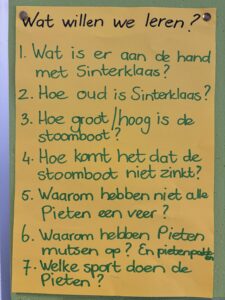 Wat willen we leren?
1. Wat is er aan de hand
met Sinterklaas?
2. Hoe oud is Sinterklaas?
3. Hoe groot/hoog is de
stoomboot?
4. Hoe komt het dat de
stoomboot niet zinkt?
5. Waarom hebben niet alle
Pieten een veer?
6. Waarom hebben Pieten
mutsen op? En pietenpakken
7. Welke sport doen de
Pieten?